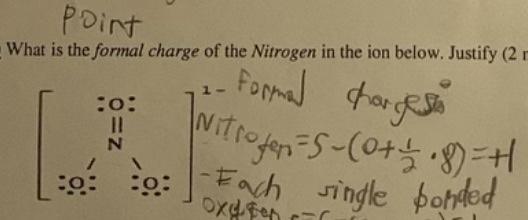 point
What is the formal charge of the Nitrogen in the ion below. Justify (2
1-
:O:
N
:O: :O:
Formal charges:
Nitrogen=5-(0+1/2·8)=+1
-Each single bonded
oxygen